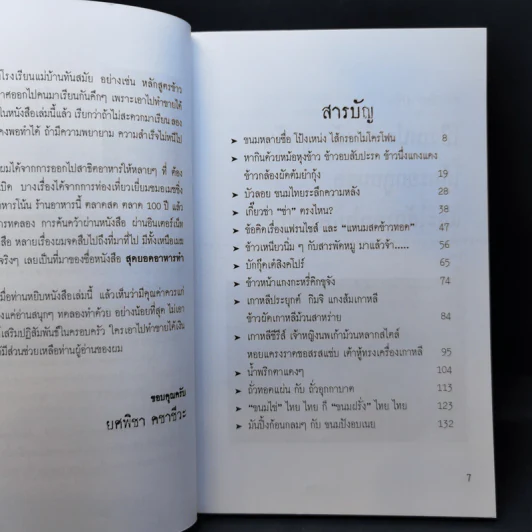 โรงเรียนแม่บ้านทันสมัย อย่างเช่น หลักสูตรข้าว
าศออกไปคนมาเรียนกันคึกๆ เพราะเอาไปทำขายได้
ในหนังสือเล่มนี้แล้ว เรียกว่าถ้าไม่สะดวกมาเรียนลอง
คงพอทำได้ ถ้ามีความพยายาม ความสำเร็จไม่หนีไป
ผมได้จากการออกไปสาธิตอาหารให้หลายๆ ที่ ต้อง
เปิด บางเรื่องได้จากการท่องเที่ยวเยี่ยมชมอเมซซิ่ง
าหารโน้น ร้านอาหารนี้ ตลาดสด ตลาด 100 ปี แล้ว
ารทดลอง การค้นคว้าผ่านหนังสือ ผ่านอินเตอร์เน็ต
สือ หลายเรื่องผมจดสืบไปถึงที่มาที่ไป มีทั้งเหนื่อย
จริงๆ เลยเป็นที่มาของชื่อหนังสือ สุดยอดอาหารทำ
มื่อท่านหยิบหนังสือเล่มนี้ แล้วเห็นว่ามีคุณค่าควรแก่
แค่อ่านสนุกๆ ทดลองทำด้วย อย่างน้อยที่สุด ไม่เอา
สริมปฏิสัมพันธ์ในครอบครัว ใครเอาไปทำขายได้เงิน
มีส่วนช่วยเหลือท่านผู้อ่านของผม
ขอบคุณครับ
ยศพิชา คชาชีวะ
สารบัญ
➤ ขนมหลายชื่อ โป๊งเหน่ง ไส้กรอกไมโครโฟน 8
➤ หากินด้วยหม้อหุงข้าว ข้าวอบสับปะรด ข้าวนึ่งแกงแดง
ข้าวกล้องผัดต้มยำกุ้ง 19
➤ บัวลอย ขนมไทยระลึกความหลัง 28
➤ เกี๊ยวซ่า "ซ่า" ตรงไหน? 38
➤ ข้อคิดเรื่องแฟรนไชส์ และ "แหนมสดข้าวทอด" 47
➤ ข้าวเหนียวนิ่ม ๆ กับสารพัดหมู มาแล้วจ้า..... 56
➤ บักกุ๊ดเต๋สิงคโปร์ 65
➤ ข้าวหน้าแกงกะหรี่คิกขุจัง 74
➤ เกาหลีประยุกต์ กิมจิ แกงส้มเกาหลี
ข้าวผัดเกาหลีม้วนสาหร่าย 84
➤ เกาหลีซีรีส์ เจ้าหญิงนพเก้าม้วนหลากสไตล์
หอยแครงราดซอสรสแซ่บ เต้าหู้ทรงเครื่องเกาหลี 95
➤ น้ำพริกตาแดงๆ 104
➤ ถั่วทอดแผ่น กับ ถั่วอุกกาบาต 113
➤ "ขนมไข่" ไทย ไทย ก็ "ขนมฝรั่ง" ไทย ไทย 123
➤ มันปิ้งก้อนกลมๆ กับ ขนมปังอบเนย 132
7